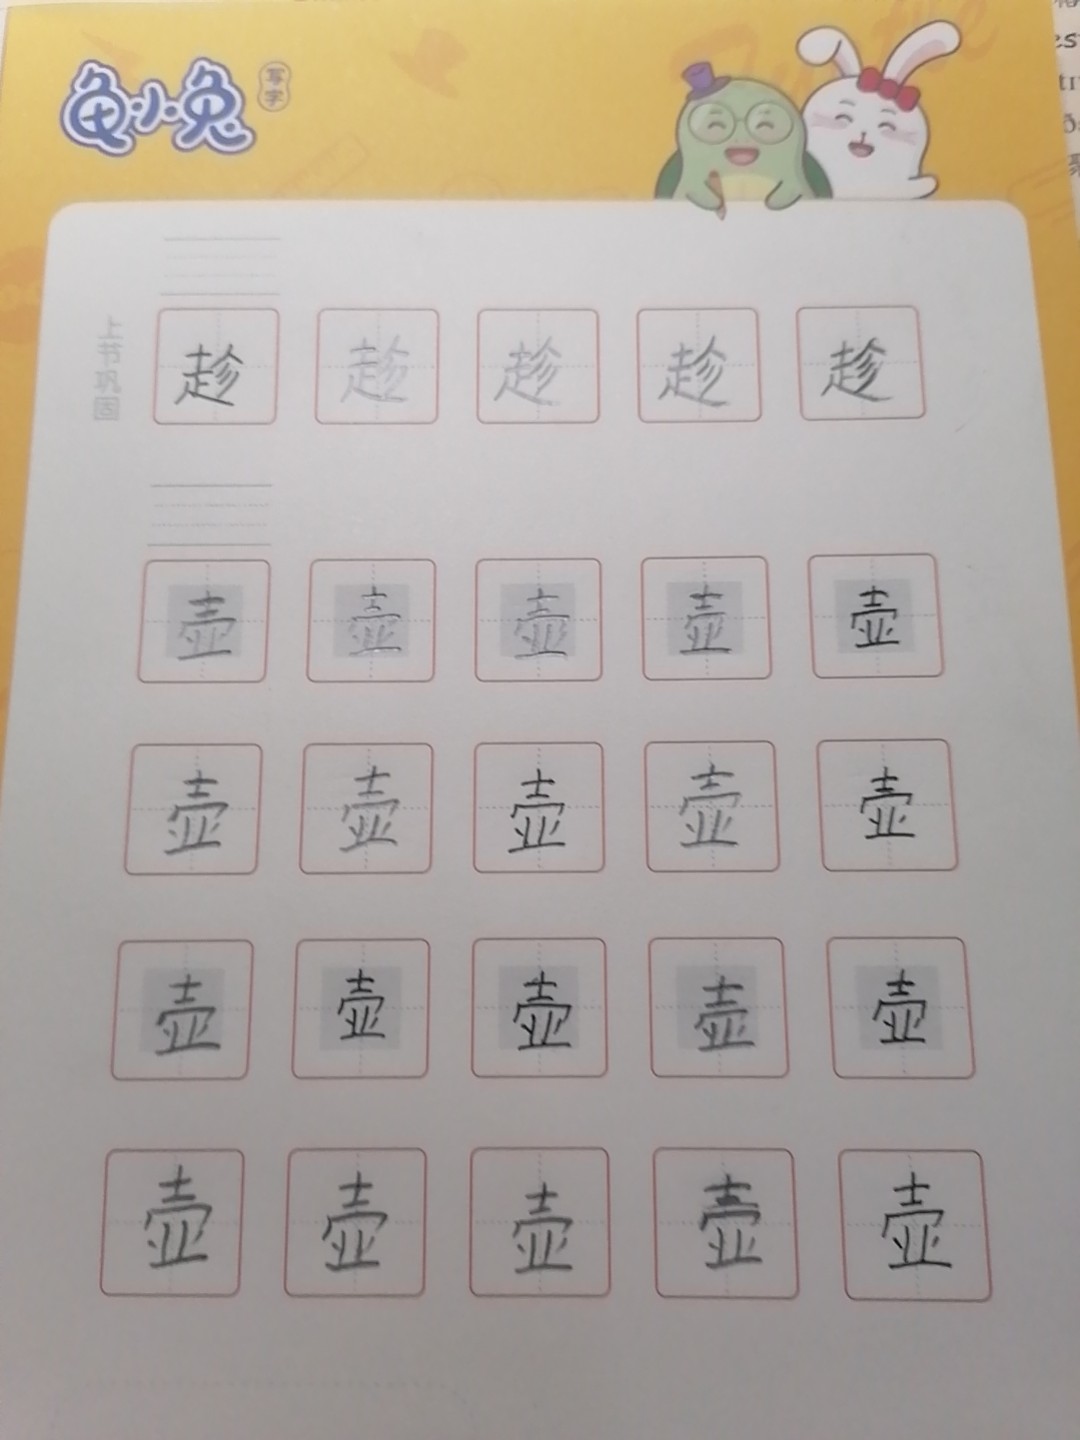 龟小兔 写字
上节巩固
趁 趁 趁 趁 趁
壶 壶 壶 壶 壶
壶 壶 壶 壶 壶
壶 壶 壶 壶 壶
壶 壶 壶 壶 壶